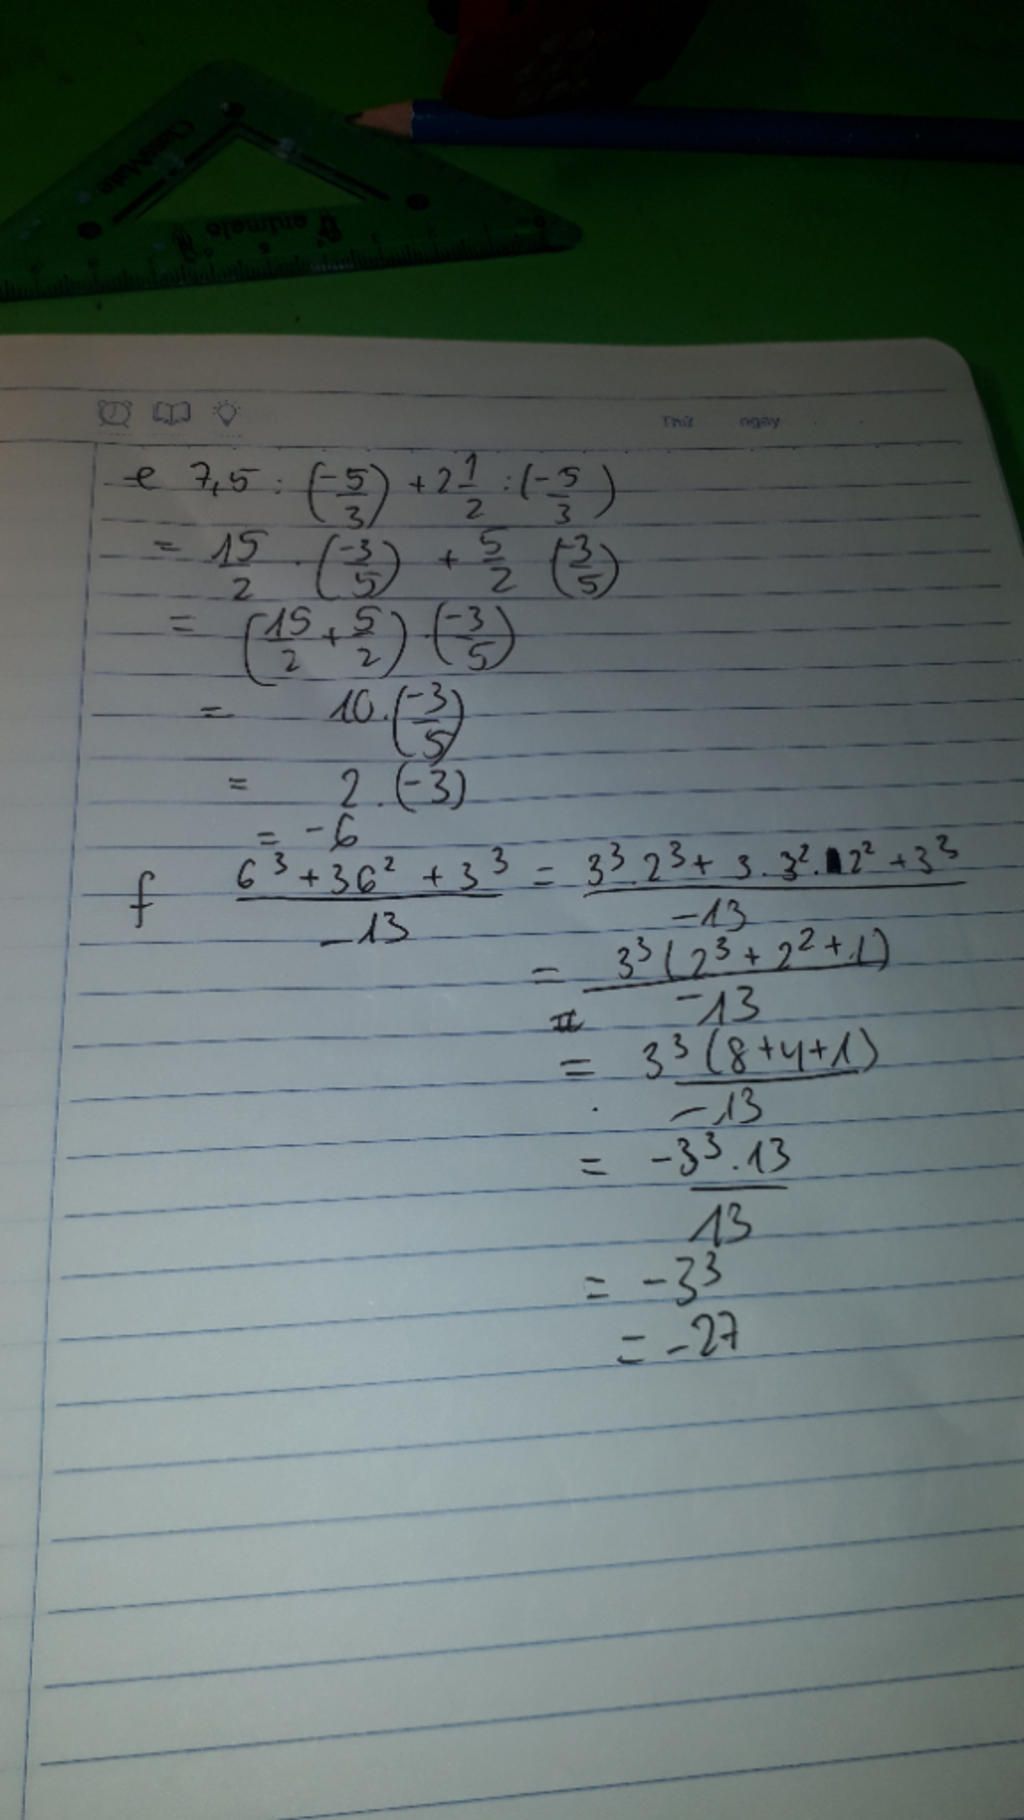 animato
Thứ ngày
e 7,5 : (-5/3) + 2 1/2 : (-5/3)
= 15/2 . (-3/5) + 5/2 (-3/5)
= (15/2 + 5/2) . (-3/5)
= 10 . (-3/5)
= 2 . (-3)
= -6
f (6³ + 36² + 3³)/-13 = (3³.2³ + 3.3².2² + 3³)/-13
= 3³(2³ + 2² + 1)/-13
= 3³(8+4+1)/-13
= -3³.13/13
= -3³
= -27